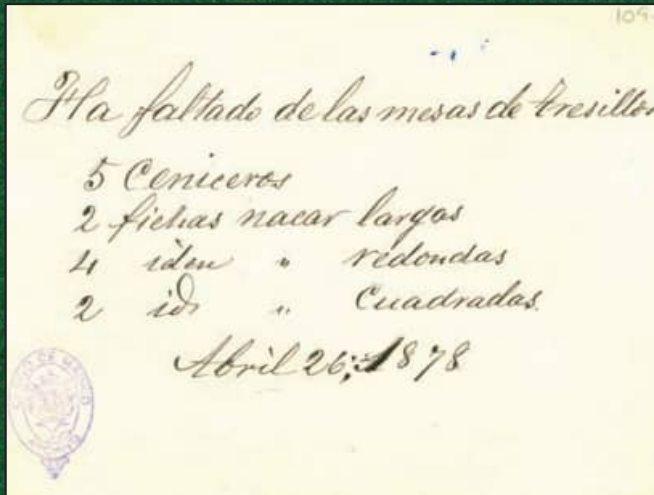 109
Ha faltado de las mesas de tresillo
5 Ceniceros
2 fichas nacar largas
4 iden " redondas
2 id " Cuadradas.
Abril 26, 1878